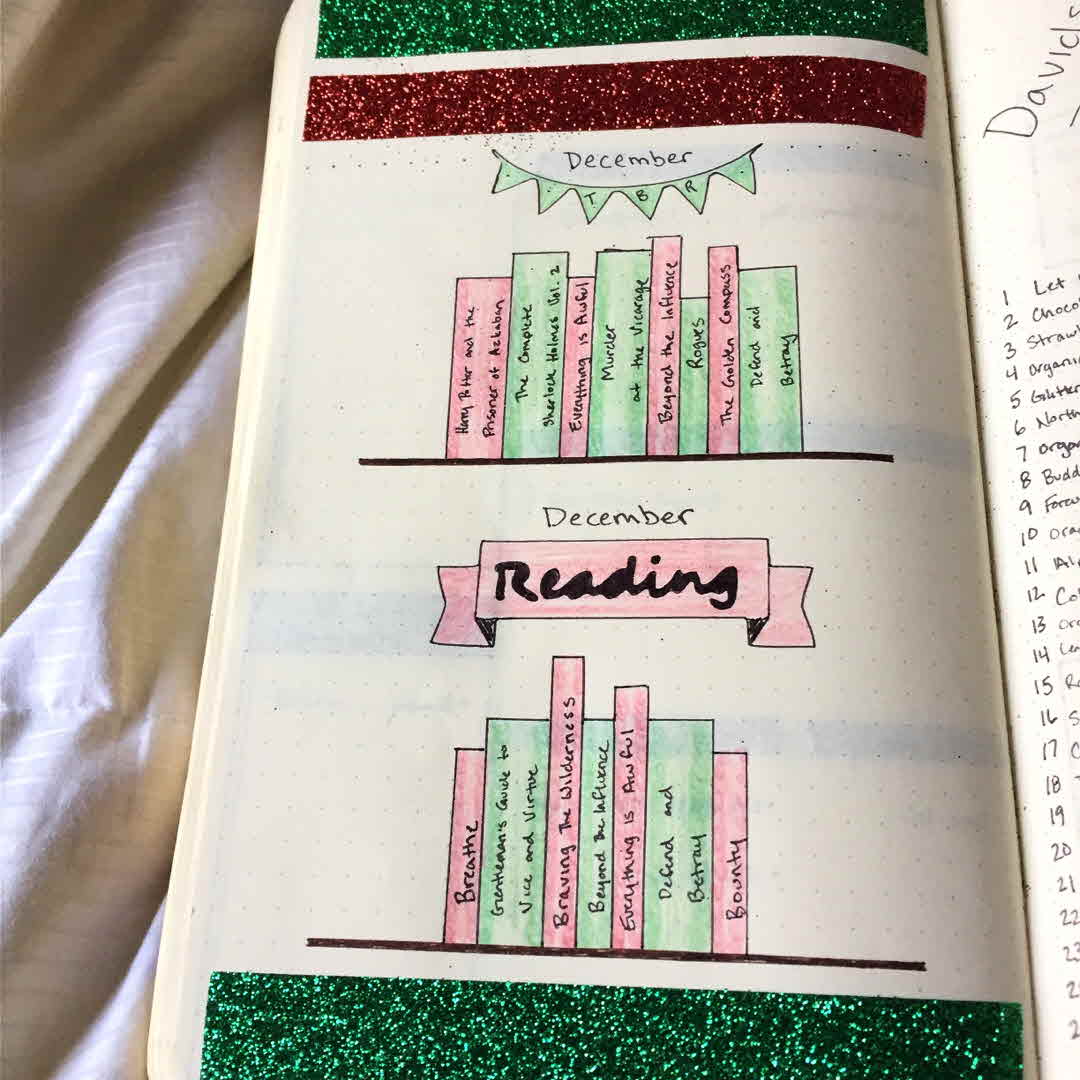 December
T B R
Harry Potter and the
Prisoner of Azkaban
The Complete
Sherlock Holmes Vol. 2
Everything is Awful
Murder
at the Vicarage
Beyond the Influence
Rogues
The Golden Compass
Defend and
Betray
December
Reading
Breathe
Gentleman's Guide to
Vice and Virtue
Braving The Wilderness
Beyond The Influence
Everything is Awful
Defend and
Betray
Bounty
David
1 Let
2
3
4
5 Glitter
6
7
8
9
10
11
12
13
14
15
16
17
18
19
20
21
22
23